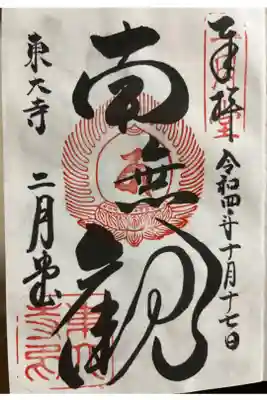 奉拝
令和四年十月十七日
南無観
東大寺
二月堂